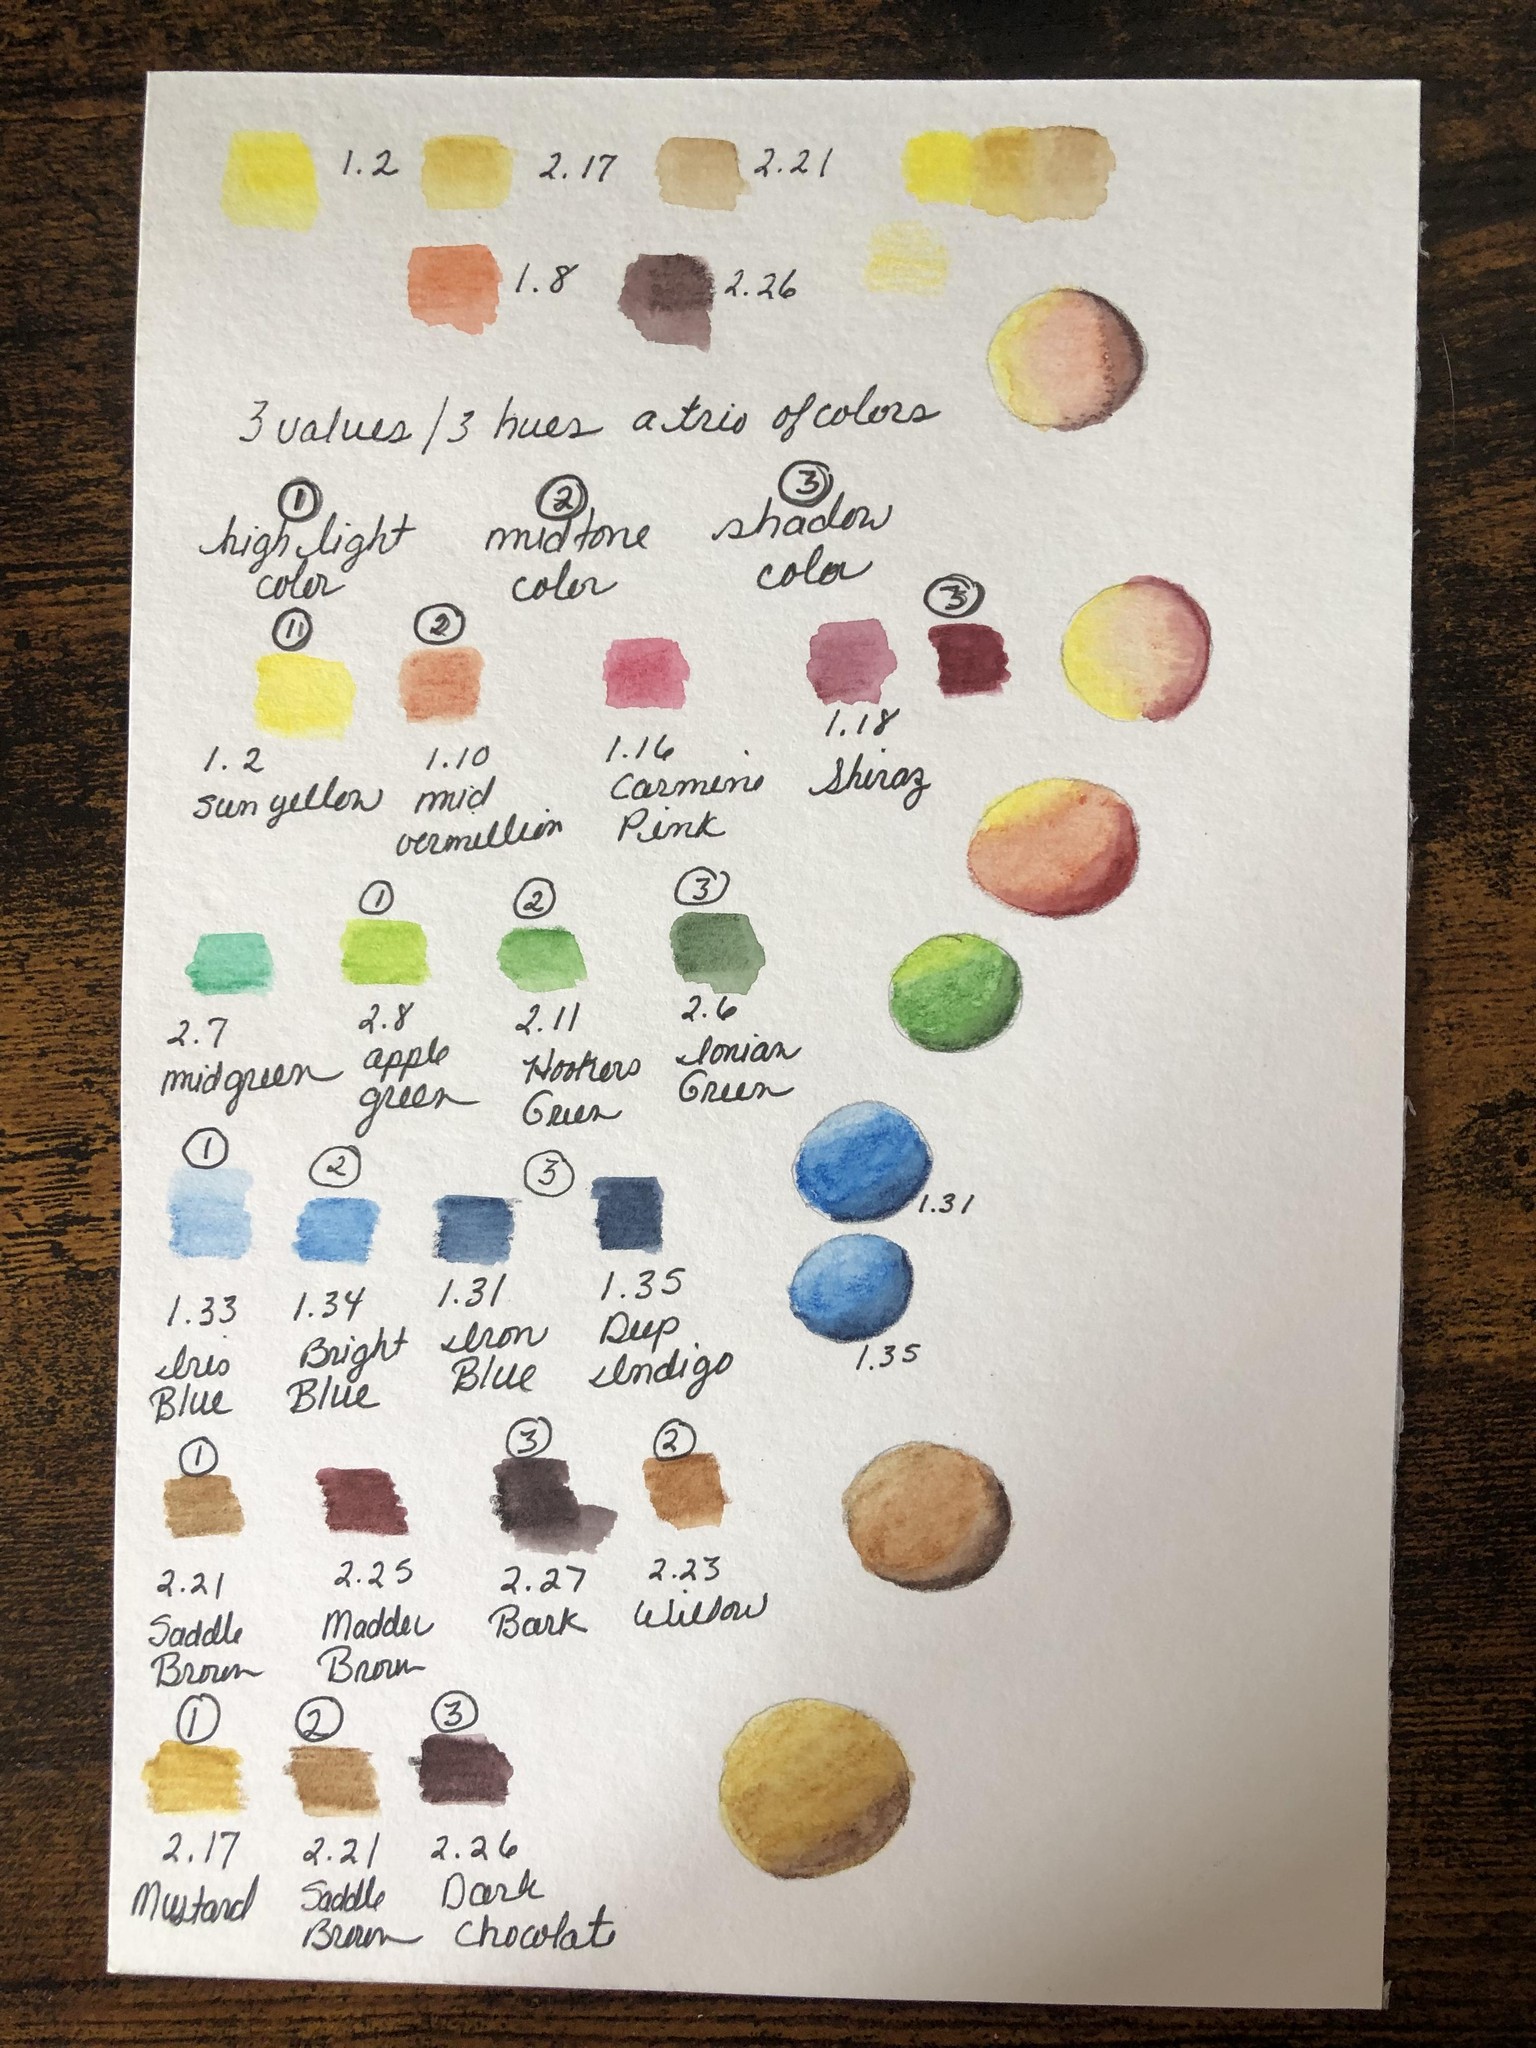 1.2 2.17 2.21
1.8 2.26
3 values / 3 hues a trio of colors
1 2 3
highlight color midtone color shadow color
1 2 3
1.2 sun yellow
1.10 mid vermillion
1.16 Carmine Pink
1.18 Shiraz
1 2 3
2.7 mid green
2.8 apple green
2.11 Hookers Green
2.6 Ionian Green
1 2 3
1.33 Iris Blue
1.34 Bright Blue
1.31 Iron Blue
1.35 Deep Indigo
1.31
1.35
1 3 2
2.21 Saddle Brown
2.25 Madder Brown
2.27 Bark
2.23 Willow
1 2 3
2.17 Mustard
2.21 Saddle Brown
2.26 Dark Chocolate